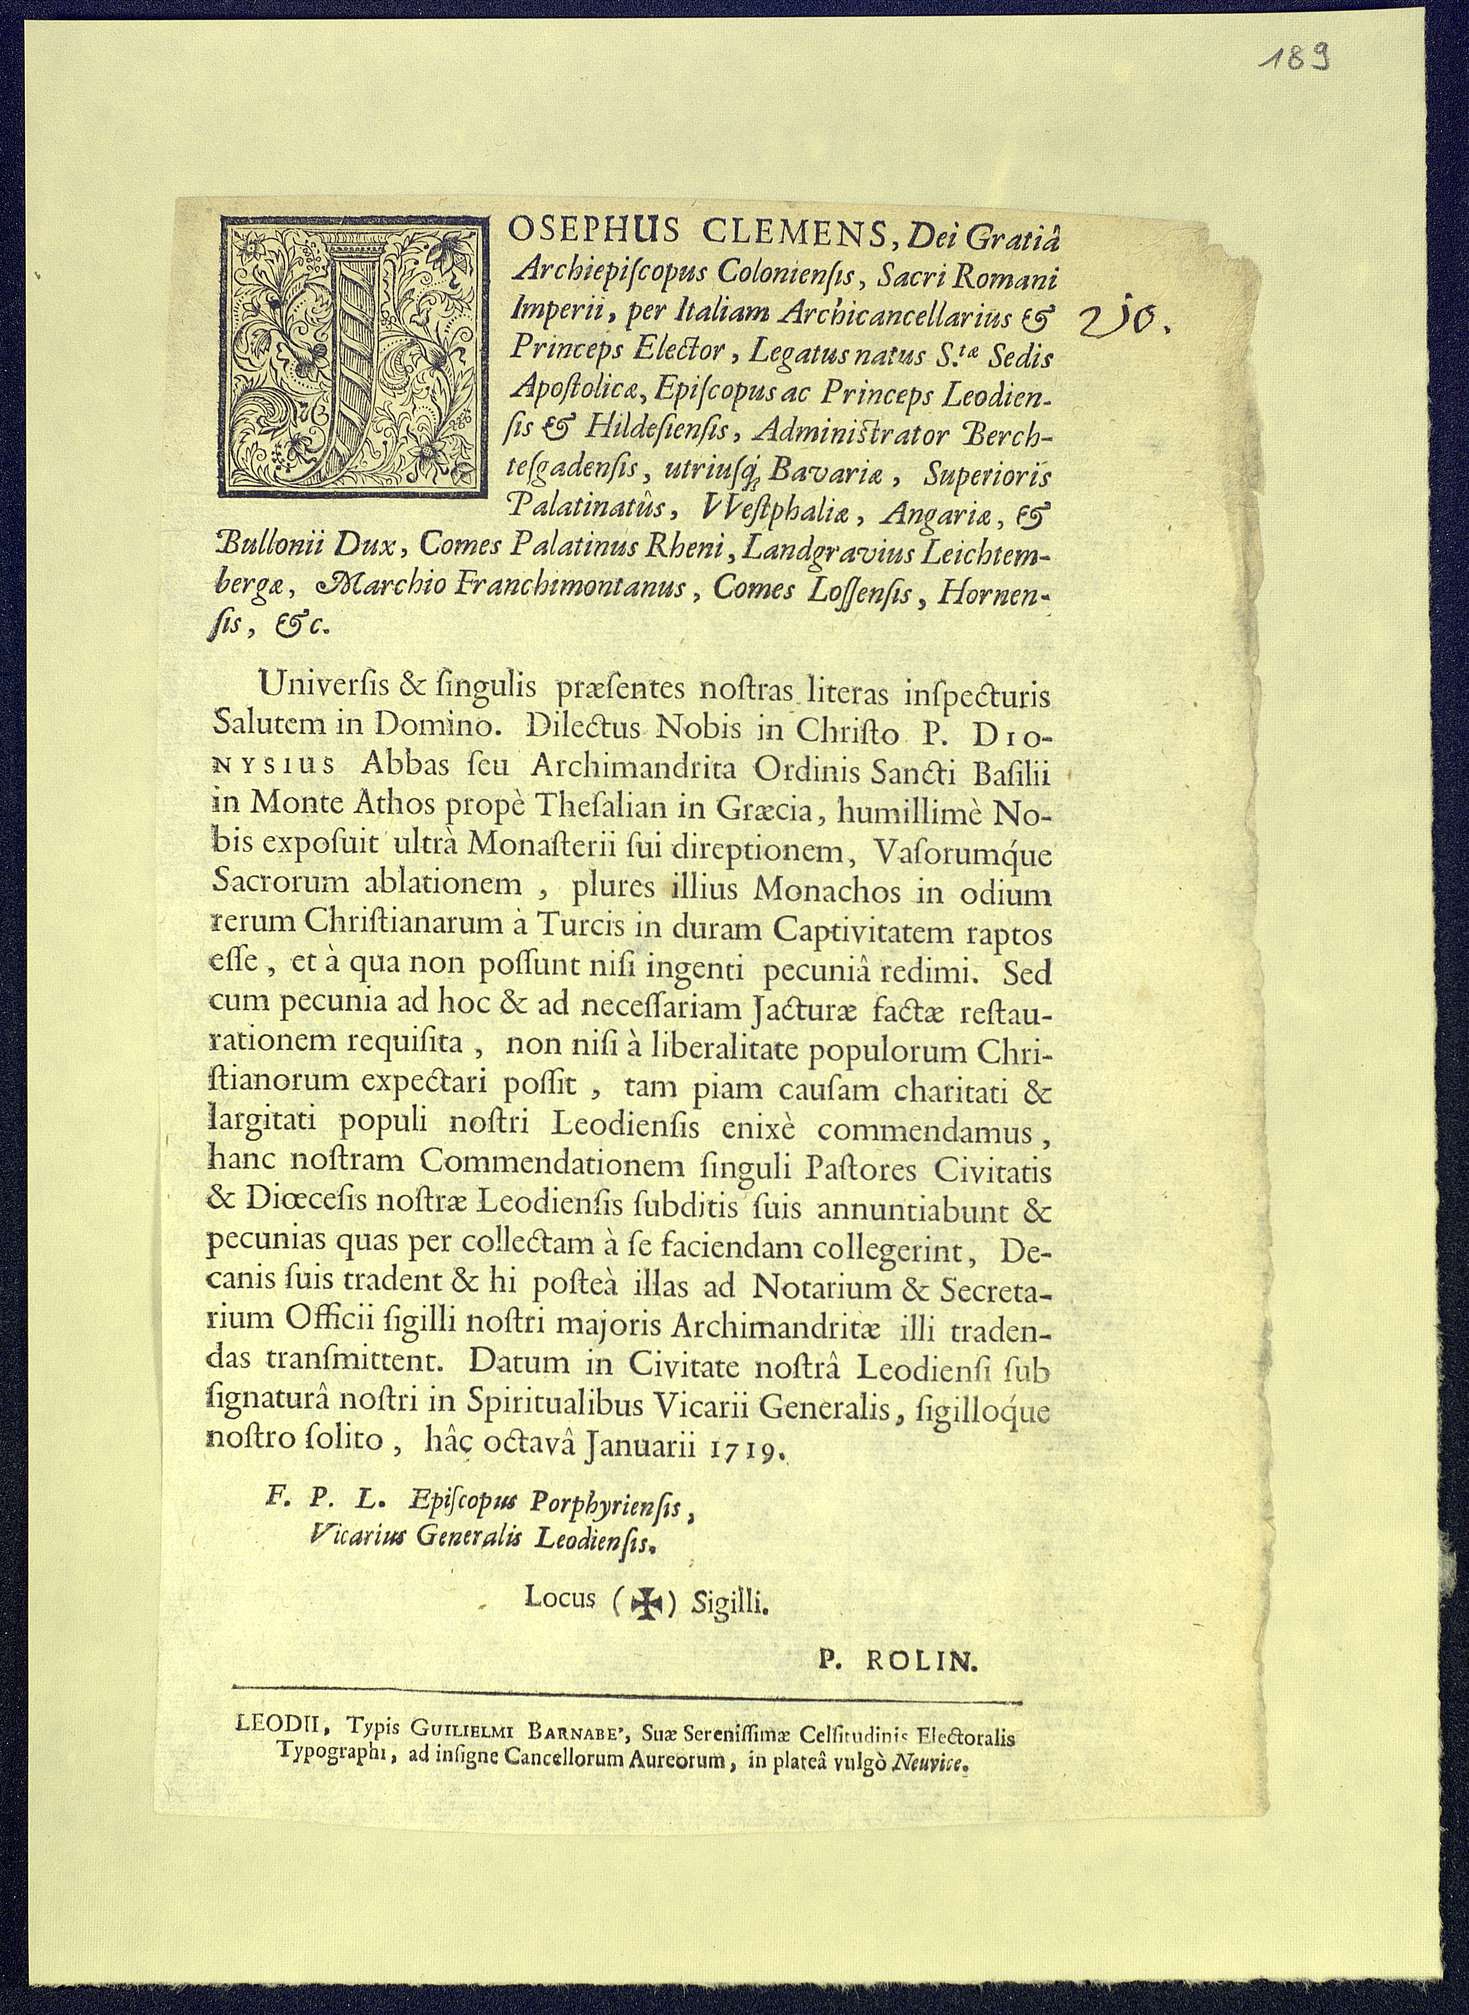 189
JOSEPHUS CLEMENS, Dei Gratiâ
Archiepiſcopus Colonienſis, Sacri Romani
Imperii, per Italiam Archicancellarius &
Princeps Elector, Legatus natus S.tæ Sedis
Apoſtolicæ, Epiſcopus ac Princeps Leodien-
ſis & Hildeſienſis, Adminiſtrator Berch-
teſgadenſis, utriuſq́; Bavariæ, Superioris
Palatinatûs, VVeſtphaliæ, Angariæ, &
Bullonii Dux, Comes Palatinus Rheni, Landgravius Leichtem-
bergæ, Marchio Franchimontanus, Comes Loſſenſis, Hornen-
ſis, &c.
Univerſis & ſingulis præſentes noſtras literas inſpecturis
Salutem in Domino. Dilectus Nobis in Chriſto P. DIO-
NYSIUS Abbas ſeu Archimandrita Ordinis Sancti Baſilii
in Monte Athos propè Theſalian in Græcia, humillimè No-
bis expoſuit ultrà Monaſterii ſui direptionem, Vaſorumq́ue
Sacrorum ablationem, plures illius Monachos in odium
rerum Chriſtianarum à Turcis in duram Captivitatem raptos
eſſe, et à qua non poſſunt niſi ingenti pecuniâ redimi. Sed
cum pecunia ad hoc & ad neceſſariam Jacturæ factæ reſtau-
rationem requiſita, non niſi à liberalitate populorum Chri-
ſtianorum expectari poſſit, tam piam cauſam charitati &
largitati populi noſtri Leodienſis enixè commendamus,
hanc noſtram Commendationem ſinguli Paſtores Civitatis
& Diœceſis noſtræ Leodienſis ſubditis ſuis annuntiabunt &
pecunias quas per collectam à ſe faciendam collegerint, De-
canis ſuis tradent & hi poſteà illas ad Notarium & Secreta-
rium Officii ſigilli noſtri majoris Archimandritæ illi traden-
das tranſmittent. Datum in Civitate noſtrâ Leodienſi ſub
ſignaturâ noſtri in Spiritualibus Vicarii Generalis, ſigilloq́ue
noſtro ſolito, hâc octavâ Januarii 1719.
F. P. L. Epiſcopus Porphyrienſis,
Vicarius Generalis Leodienſis.
Locus (✠) Sigilli.
P. ROLIN.
LEODII, Typis GUILIELMI BARNABE', Suæ Sereniſſimæ Celſitudinis Electoralis
Typographi, ad inſigne Cancellorum Aureorum, in plateâ vulgò Neuvice.